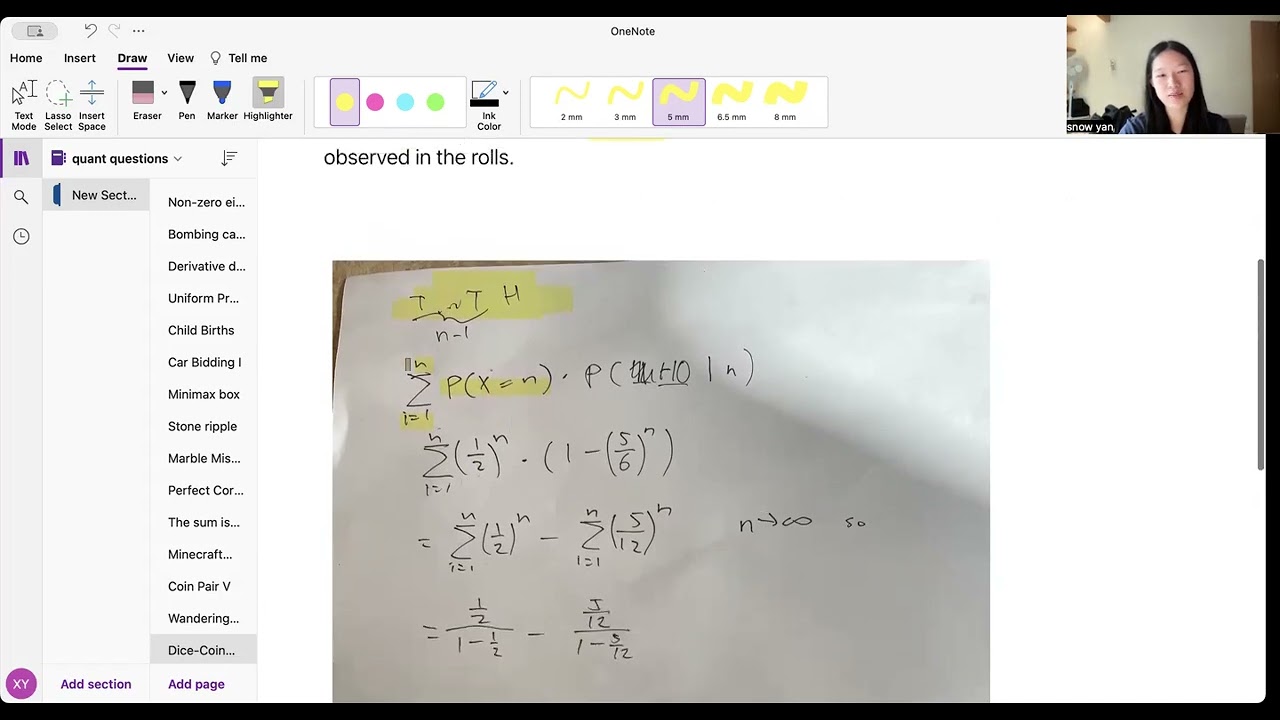 OneNote
Home Insert Draw View Tell me
Text Mode
Lasso Select
Insert Space
Eraser
Pen
Marker
Highlighter
Ink Color
2 mm
3 mm
5 mm
6.5 mm
8 mm
snow yan
quant questions
New Sect...
Non-zero ei...
Bombing ca...
Derivative d...
Uniform Pr...
Child Births
Car Bidding I
Minimax box
Stone ripple
Marble Mis...
Perfect Cor...
The sum is...
Minecraft...
Coin Pair V
Wandering...
Dice-Coin...
XY
Add section
Add page
observed in the rolls.
T ~ T H
n-1
n ∑ i=1 P(X=n) · P( | n)
n ∑ i=1 (1/2)^n · (1 - (5/6)^n)
= n ∑ i=1 (1/2)^n - n ∑ i=1 (5/12)^n n→∞ so
= (1/2)/(1-1/2) - (5/12)/(1-5/12)